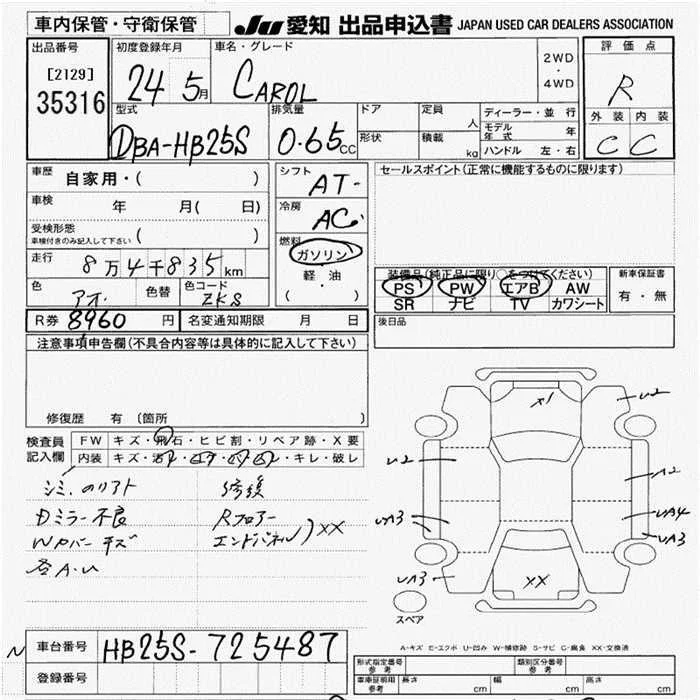 車内保管・守衛保管 JU 愛知 出品申込書 JAPAN USED CAR DEALERS ASSOCIATION
出品番号 初度登録年月 車名・グレード 2WD・4WD 評価点
[2129] 24 5月 CAROL R
35316
型式 排気量 ドア 定員 人 ディーラー・並行 外装 内装
DBA-HB25S 0.65cc 形状 積載 kg モデル年式 年 C C
ハンドル 左・右
車歴 自家用・( ) シフト AT- セールスポイント(正常に機能するものに限ります)
車検 年 月( 日) 冷房 AC
受検形態 車検付きのみ記入して下さい ( )
燃料 ガソリン
走行 8万4千835km 軽・油 装備品(純正品に限り○をつけてください) 新車保証書
色 アオ 色替 色コード ZKS ( ・ ) PS PW エアB AW 有・無
SR ナビ TV カワシート
R券 8960円 名変通知期限 月 日 後日品
注意事項申告欄(不具合内容等は具体的に記入して下さい)
修復歴 有 (箇所
検査員記入欄 FW キズ・飛石・ヒビ割・リペア跡・X要
内装 キズ・ ・キレ・破レ
シミ 修復
Dミラー不良 Rフロアー
エンドパネル )XX
各A.U
X1
U2
U2
A2
UA3
UA4
UA3
UA3
XX
スペア
A-キズ E-エクボ U-凹み W-補修跡 S-サビ C-腐食 XX-交換済
N 車台番号 HB25S-725487
登録番号
形式指定番号 参考 類別区分番号 参考
車庫証明用 参考 長さ cm 幅 cm 高さ cm